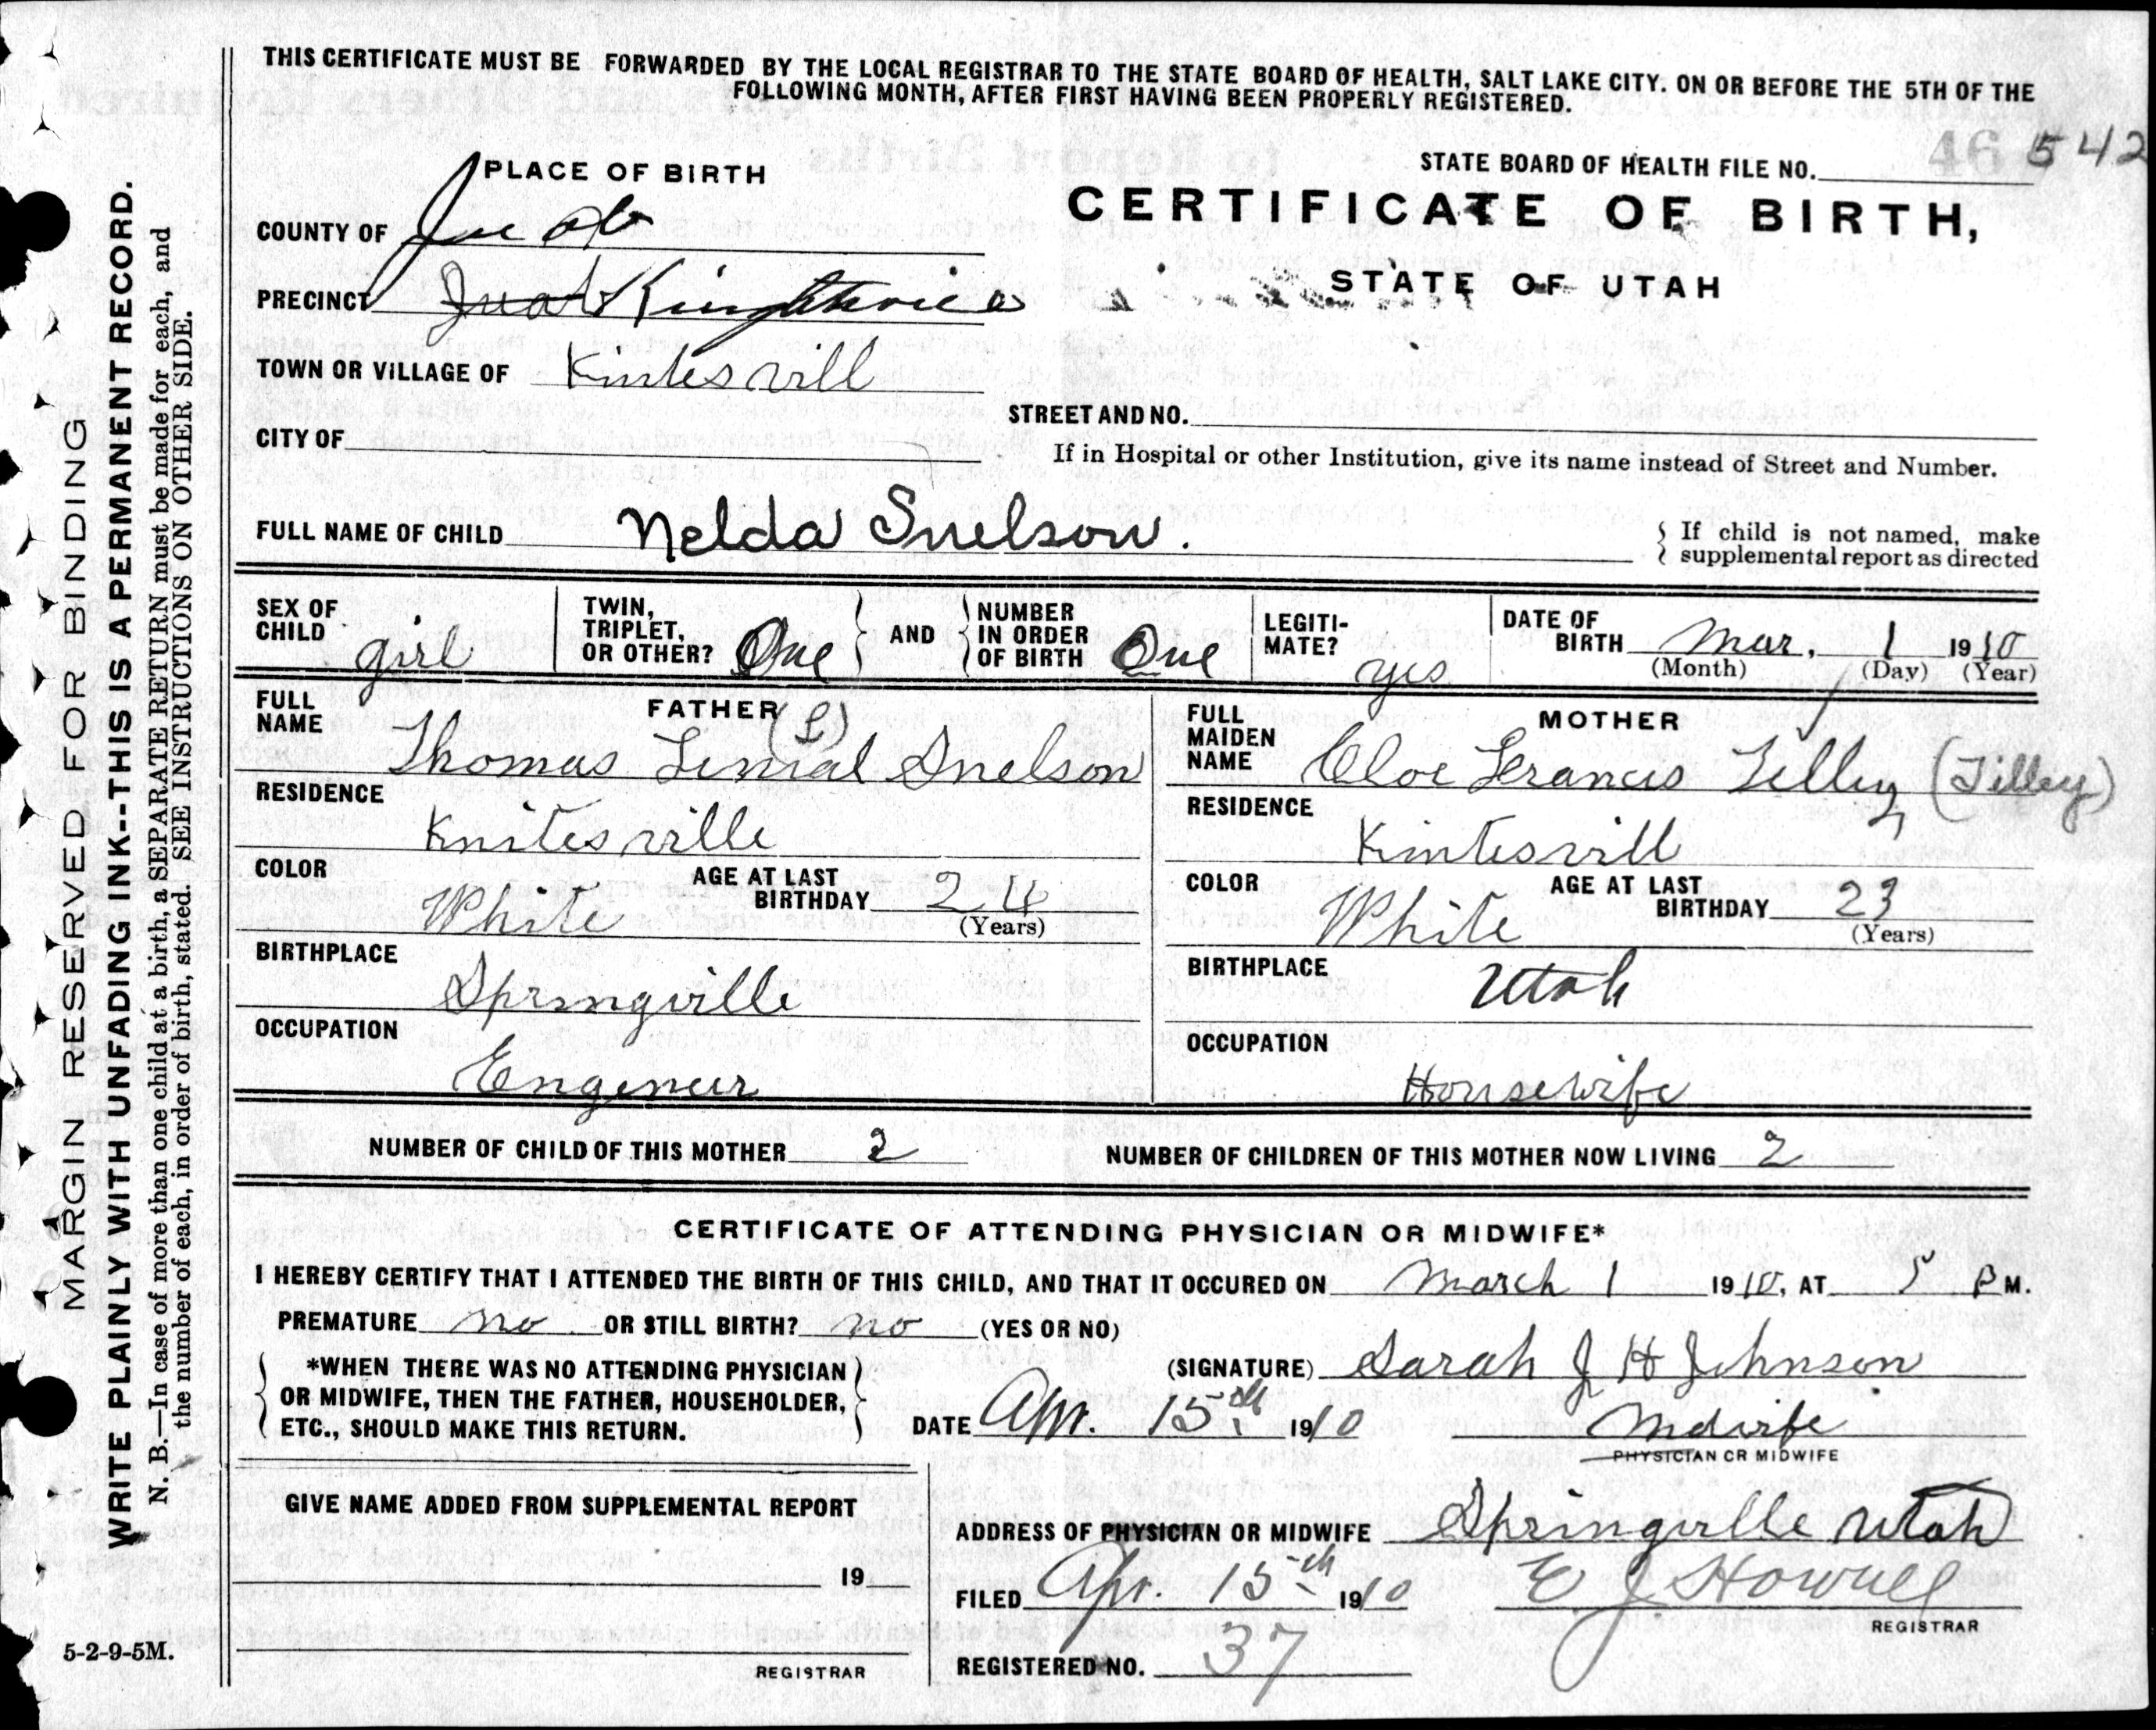 THIS CERTIFICATE MUST BE FORWARDED BY THE LOCAL REGISTRAR TO THE STATE BOARD OF HEALTH, SALT LAKE CITY. ON OR BEFORE THE 5TH OF THE
FOLLOWING MONTH, AFTER FIRST HAVING BEEN PROPERLY REGISTERED.
STATE BOARD OF HEALTH FILE NO. 46 542
PLACE OF BIRTH
CERTIFICATE OF BIRTH,
STATE OF UTAH
COUNTY OF Juab
PRECINCT Juab
TOWN OR VILLAGE OF Kintesvill
STREET AND NO.
CITY OF
If in Hospital or other Institution, give its name instead of Street and Number.
FULL NAME OF CHILD Nelda Snelson.
If child is not named, make
supplemental report as directed
SEX OF CHILD girl
TWIN, TRIPLET, OR OTHER? One
AND
NUMBER IN ORDER OF BIRTH One
LEGITI-MATE? yes
DATE OF BIRTH Mar. 1 1910
(Month) (Day) (Year)
FATHER
FULL NAME Thomas Snelson
RESIDENCE Knitesville
COLOR White
AGE AT LAST BIRTHDAY 24
(Years)
BIRTHPLACE Springville
OCCUPATION Engeneer
MOTHER
FULL MAIDEN NAME Cloe Francis Tilley (Tilley)
RESIDENCE Kintesvill
COLOR White
AGE AT LAST BIRTHDAY 23
(Years)
BIRTHPLACE Utah
OCCUPATION Housewife
NUMBER OF CHILD OF THIS MOTHER 2
NUMBER OF CHILDREN OF THIS MOTHER NOW LIVING 2
CERTIFICATE OF ATTENDING PHYSICIAN OR MIDWIFE*
I HEREBY CERTIFY THAT I ATTENDED THE BIRTH OF THIS CHILD, AND THAT IT OCCURED ON March 1 1910, AT 5 P M.
PREMATURE no OR STILL BIRTH? no (YES OR NO)
*WHEN THERE WAS NO ATTENDING PHYSICIAN
OR MIDWIFE, THEN THE FATHER, HOUSEHOLDER,
ETC., SHOULD MAKE THIS RETURN.
(SIGNATURE) Sarah J H Johnson
DATE Apr. 15th 1910
Mdwife
PHYSICIAN OR MIDWIFE
GIVE NAME ADDED FROM SUPPLEMENTAL REPORT
19
REGISTRAR
ADDRESS OF PHYSICIAN OR MIDWIFE Springville Utah
FILED Apr. 15th 1910
E J Howell
REGISTRAR
REGISTERED NO. 37
5-2-9-5M.
MARGIN RESERVED FOR BINDING
WRITE PLAINLY WITH UNFADING INK--THIS IS A PERMANENT RECORD.
N. B.—In case of more than one child at a birth, a SEPARATE RETURN must be made for each, and
the number of each, in order of birth, stated. SEE INSTRUCTIONS ON OTHER SIDE.